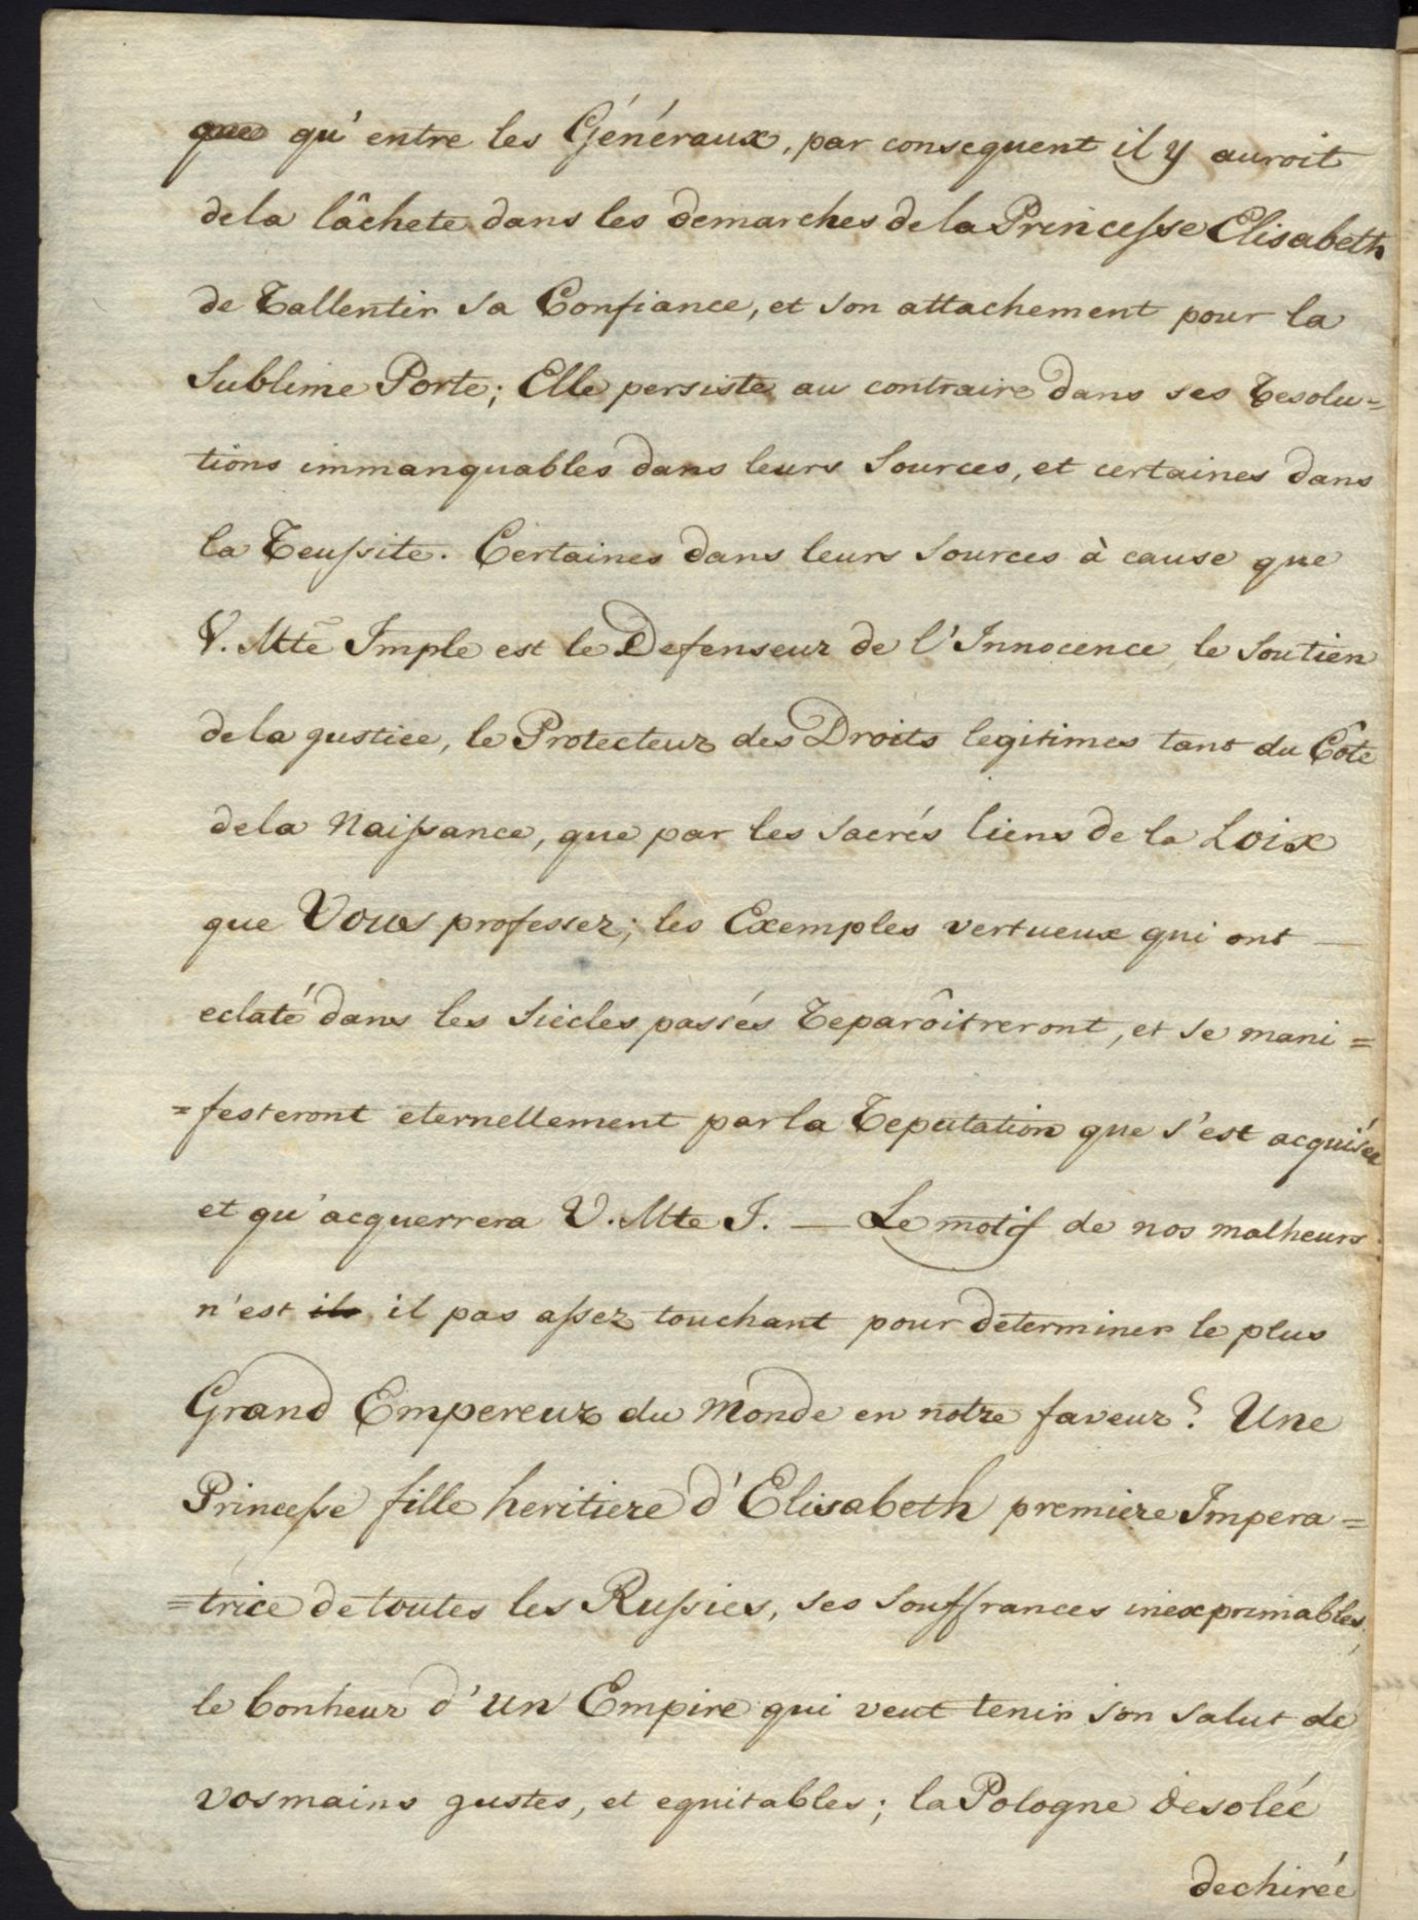 que qu'entre les Généraux, par consequent il y auroit
de la lâchete dans les demarches de la Princesse Elisabeth
de rallentir sa Confiance, et son attachement pour la
Sublime Porte; Elle persiste au contraire dans ses resolu=
tions immanquables dans leurs Sources, et certaines dans
la reussite. Certaines dans leurs Sources à cause que
V. Mte Imple est le Defenseur de l'Innocence, le Soutien
de la justice, le Protecteur des Droits legitimes tant du Côte
de la Naissance, que par les Sacrés liens de la Loix
que Vous professez; les Exemples vertueux qui ont —
eclaté dans les Siècles passés reparôitreront, et se mani=
=festeront eternellement par la reputation que s'est acquisée
et qu'acquerrera V. Mte I. — Le motif de nos malheurs
n'est ils, il pas assez touchant pour determiner le plus
Grand Empereur du Monde en notre faveur? Une
Princesse fille heritiere d'Elisabeth premiere Impera=
=trice de toutes les Russies, ses Souffrances inexprimables,
le bonheur d'un Empire qui veut tenir son salut de
vos mains justes, et equitables; la Pologne desolée
dechirée